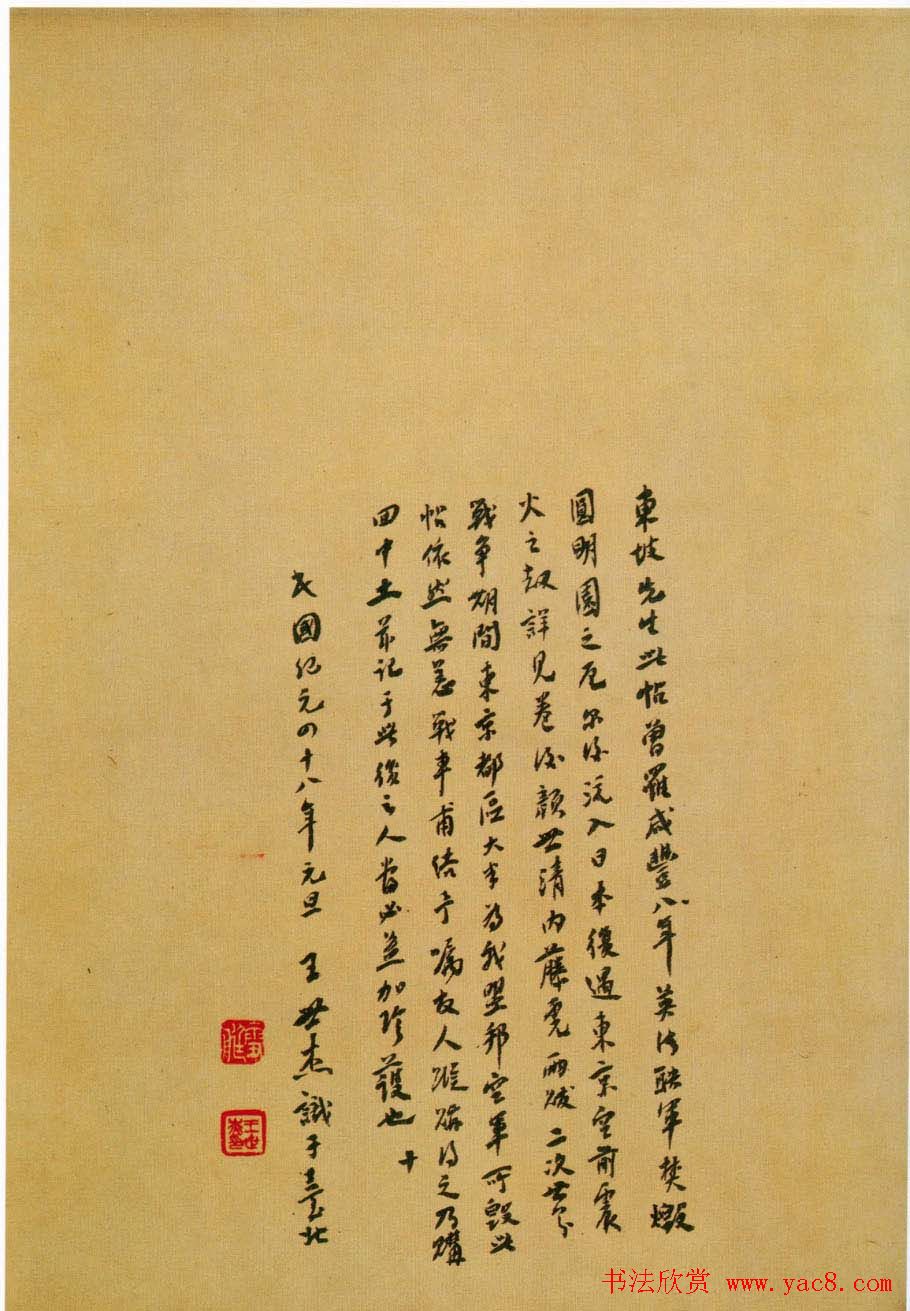 東坡先生此帖曾罹咸豐八年英法聯軍焚燬
圓明園之厄尔後流入日本復遇東京空前震
火之劫詳見卷後顏世清內藤虎兩跋二次世界
戰爭期間東京都區大半為我盟邦空軍所毀此
帖依然無恙戰事甫結予囑友人蹤跡得之乃購
回中土并記于此後之人當必益加珍護也
民國紀元四十八年元旦 王世杰識于臺北 十
王世杰
书法欣赏 www.yac8.com